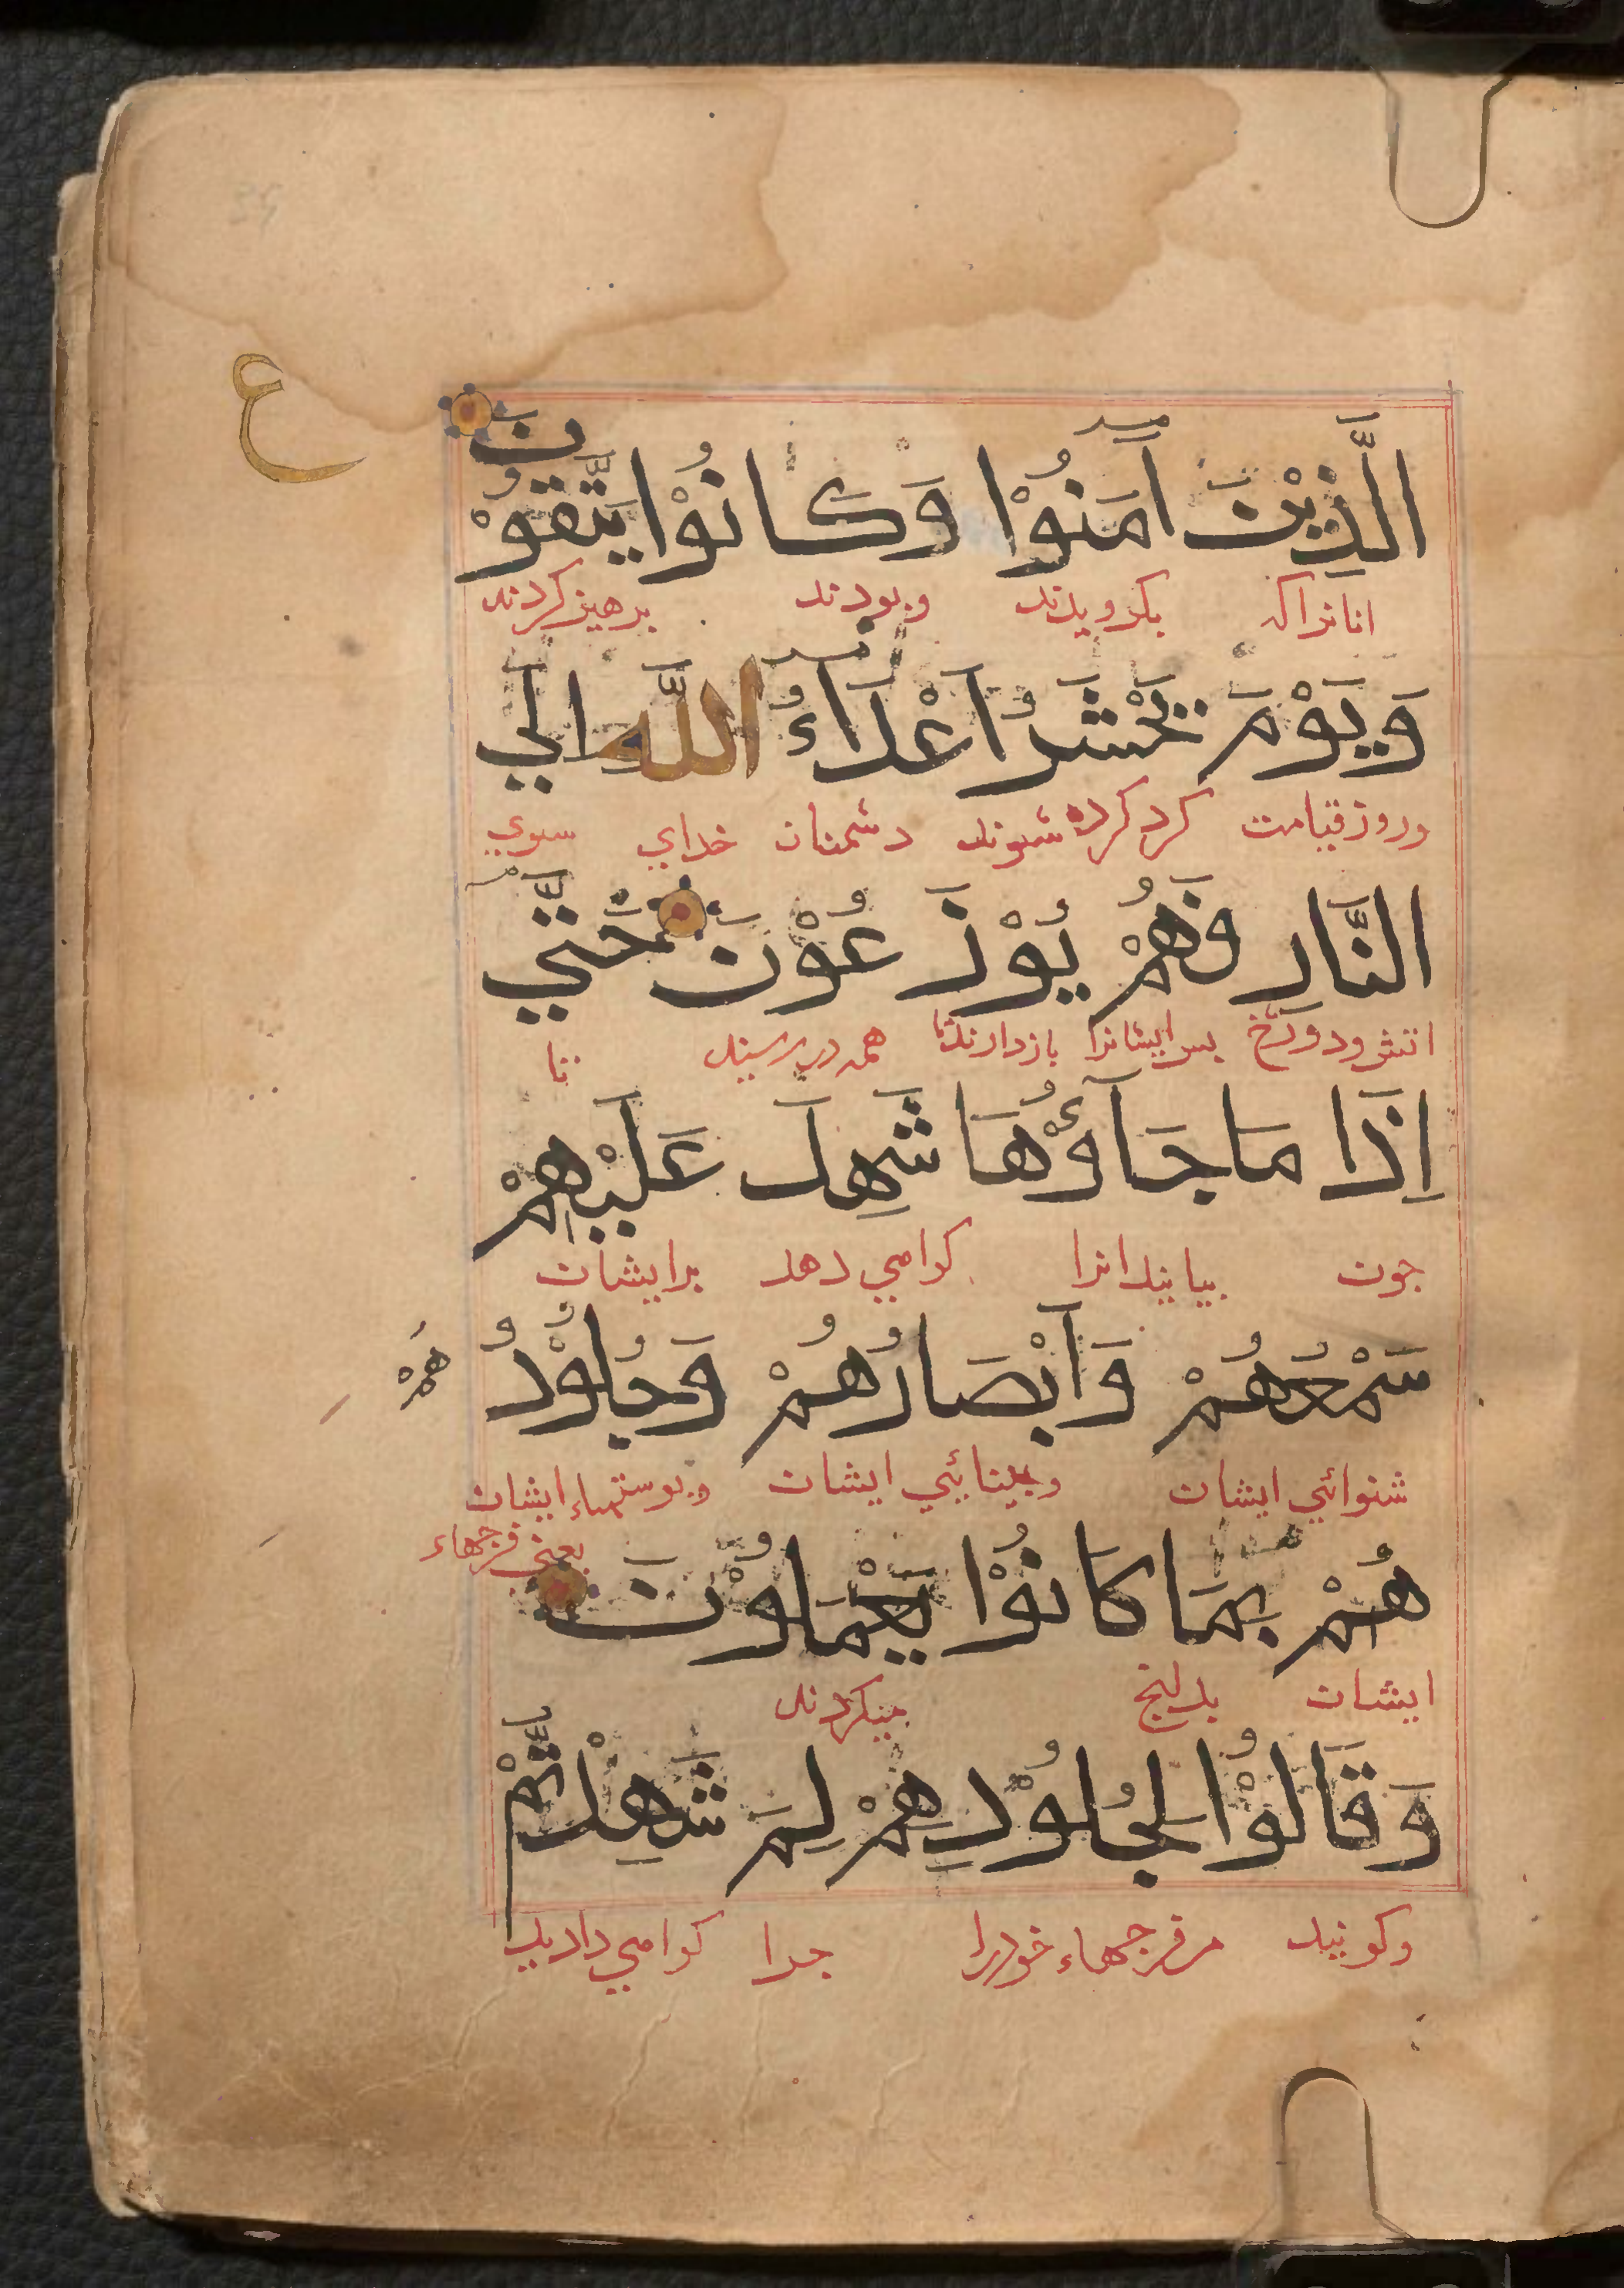 ع
الَّذِيْنَ آمَنُوْا وَكَانُوْا يَتَّقُوْنَ
انانراکه بکرویدند وبودند برهیزکردند
وَيَوْمَ يُحْشَرُ اَعْدَاءُ اللّٰهِ اِلَي
وروز قیامت کرد کرده شوند دشمنان خدای سوي
النَّارِ فَهُمْ يُوْزَعُوْنَ حَتّٰي
اتش ودوزخ بس ایشانرا بازدارند تا همه در رسیند تا
اِذَا مَا جَآؤُهَا شَهِدَ عَلَيْهِمْ
جون بیایند انرا کواهي دهد برایشان
سَمْعُهُمْ وَاَبْصَارُهُمْ وَجُلُوْدُ هُمْ
شنوائي ایشان وبینایئي ایشان وبوستهاء ایشان
یعني فرجهاء
هُمْ بِمَا كَانُوْا يَعْمَلُوْنَ
ایشان میکردند
وَقَالُوْا لِجُلُوْدِهِمْ لِمَ شَهِدْتُّمْ
وکویند مر فرجهاء خودرا جرا کواهي دادید